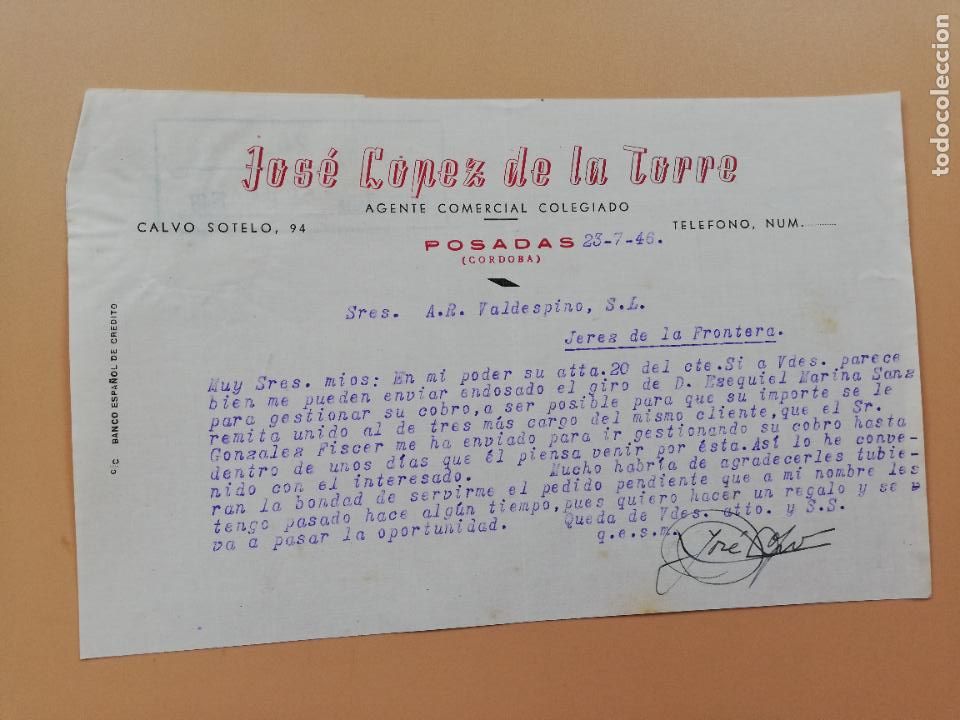 José López de la Torre
AGENTE COMERCIAL COLEGIADO
CALVO SOTELO, 94
TELEFONO, NUM.
POSADAS 23-7-46.
(CORDOBA)
C/C BANCO ESPAÑOL DE CREDITO
Sres. A.R. Valdespino, S.L.
Jerez de la Frontera.
Muy Sres. mios: En mi poder su atta.20 del cte.Si a Vdes. parece
bien me pueden enviar endosado el giro de D. Ezequiel Marina Sanz
para gestionar su cobro,a ser posible para que su importe se le
remita unido al de tres más cargo del mismo cliente,que el Sr.
Gonzalez Fiscer me ha enviado para ir gestionando su cobro hasta
dentro de unos días que él piensa venir por ésta.Así lo he conve-
nido con el interesado. Mucho habría de agradecerles tubie-
ran la bondad de servirme el pedido pendiente que a mi nombre les
tengo pasado hace algún tiempo,pues quiero hacer un regalo y se
va a pasar la oportunidad. Queda de Vdes. atto. y S.S.
q.e.s.m.
José López
todocoleccion